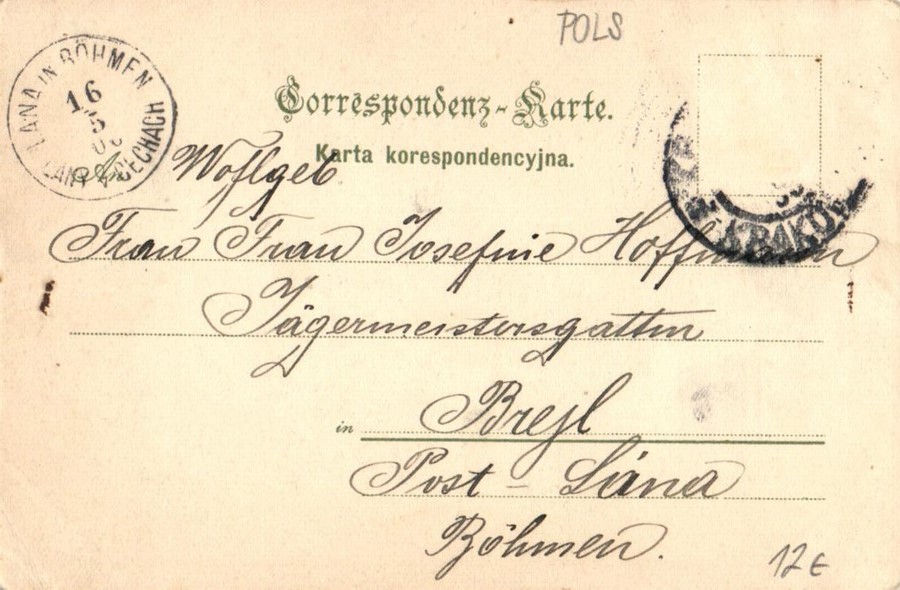 POLS
LANA IN BÖHMEN
16
5
LANY V ČECHÁCH
Correspondenz-Karte.
Karta korespondencyjna.
KRAKÓW
Wohlgeb
Frau Frau Josefine Hoffmann
Jägermeistersgattin
in Brejl
Post - Lána
Böhmen.
12€